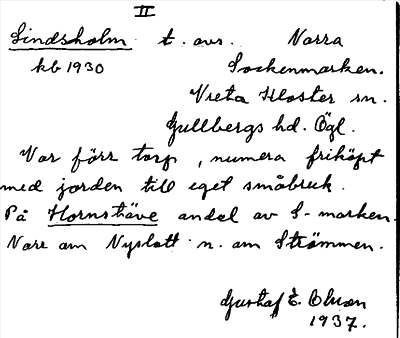 II
Lindsholm t. avs. Norra
kb 1930 Sockenmarken.
Vreta Kloster sn.
Gullbergs hd. Ögl.
Var förr torp, numera friköpt
med jorden till eget småbruk.
På Hornstäve andel av S-marken.
Nore om Nyslott n. om Strömmen.
Gustaf E. Olson
1937.